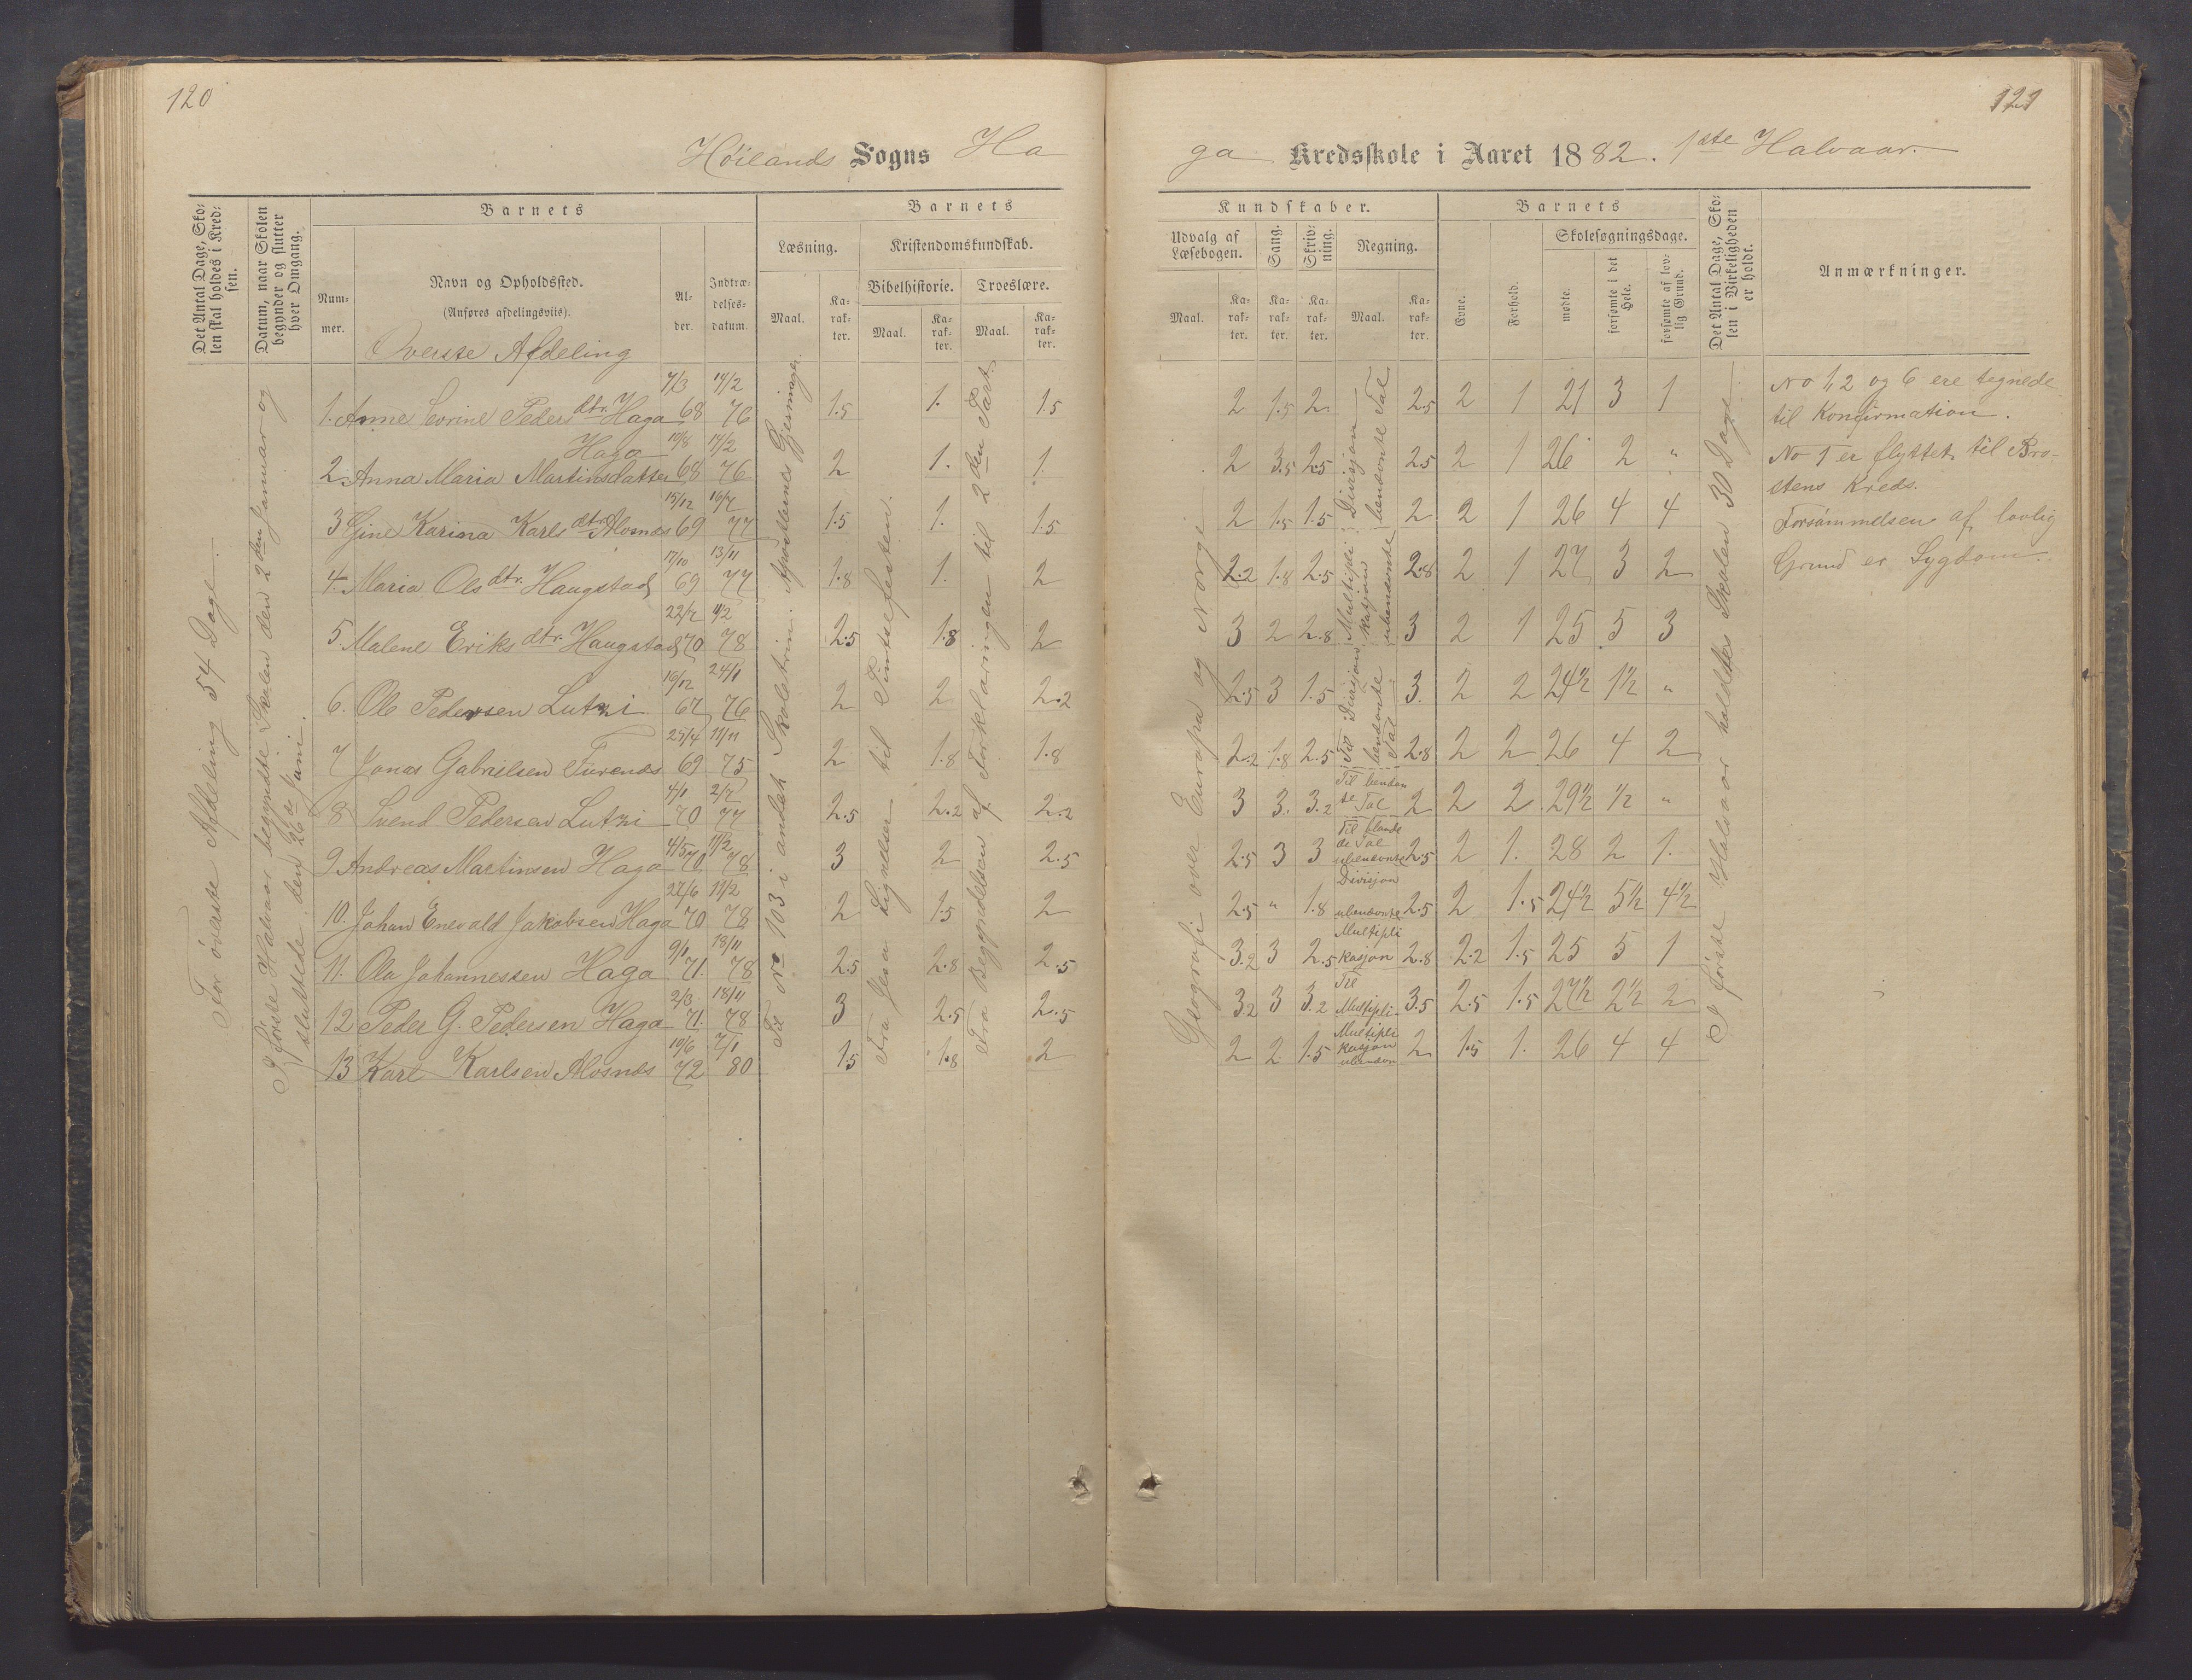 120
121
Höilands Sogns Ha
ga Kredsskole i Aaret 1882. 1ste Halvaar.
Det Antal Dage, Sko-
len skal holdes i Kred-
sen.
Datum, naar Skolen
begynder og slutter
hver Omgang.
Barnets
Num-
mer.
Navn og Opholdssted.
(Anføres afdelingsviis).
Al-
der.
Indtræ-
delses-
datum.
Barnets
Læsning.
Kristendomskundskab.
Bibelhistorie. Troeslære.
Maal. Ka-
rak-
ter.
Maal. Ka-
rak-
ter.
Maal. Ka-
rak-
ter.
Kundskaber.
Udvalg af
Læsebogen.
Sang.
Skriv-
ning.
Regning.
Maal. Ka-
rak-
ter.
Ka-
rak-
ter.
Ka-
rak-
ter.
Maal. Ka-
rak-
ter.
Barnets
Evne.
Forhold.
Skolesøgningsdage.
mødte.
forsømte i det
Hele.
forsømte af lov-
lig Grund.
Det Antal Dage, Sko-
len i Virkeligheden
er holdt.
Anmærkninger.
Överste Afdeling
For överste Afdeling 54 Dage.
I første Halvaar begyndte Skolen den 2den Januar og
sluttede den 26de Juni.
Til No 103 i andet Skoletrin. Apostlernes Gjerninger.
Fra Jesu Lignelser til Pintsefesten.
Fra Begyndelsen af Forklaringen til 2den Part
Geografi over Europa og Norge
I første Halvaar holdtes Skolen 30 Dage
7/3 14/2
1. Anne Sevrine Pedersdtr. Haga 68 76 1.5 1. 1.5 2 1.5 2 Divisjon 2.5 2 1 21 3 1
Haga 19/8 14/2
2 Anna Maria Martinsdatter 68 76 2 1. 1. 2 3.5 2.5 benævnte Tal 2.5 2 1 26 2 "
15/12 16/7
3 Gine Karina Karlsdtr. Alvsnes 69 77 1.5 1. 1.5 2 1.5 1.5 2 2 1 26 4 4
17/10 13/11
4. Maria Olsdtr. Haugstad 69 77 1.8 1. 2 2.2 1.8 2.5 Multipli- 2.8 2 1 27 3 2
kasjon
ubenævnte
22/7 11/2
5. Malene Eriksdtr. Haugstad 70 78 2.5 1.8 2 3 2 2.8 3 2 1 25 5 3
16/12 24/1
6. Ole Pedersen Lutsi 67 76 2 2 2.2 2.5 3 1.5 3. 2 2 24½ 1½ "
Til Divisjon
benævnte
Tal
25/4 11/11
7 Jonas Gabrielsen Furenes 69 75 2 1.8 1.8 2.2 1.8 2.5 2.8 2 2 26 4 2
4/1 2/7
8 Svend Pedersen Lutsi 70 77 2.5 2.2 2.2 3 3. 3.2 Til benævn
te Tal 2 2 2 29½ ½ "
4/5 11/2
9 Andreas Martinsen Haga 70 78 3 2 2.5 2.5 3 3 Til blande
de Tal
ubenævnte 2.5 2 1. 28 2 1.
27/6 11/2
10. Johan Enevald Jakobsen Haga 70 78 2 1.5 2 2.5 " 1.8 Divisjon
ubenævnte 2.5 2 1.5 24½ 5½ 4½
9/1 18/11
11. Ola Johannessen Haga 71. 78 2.5 2.8 2.5 3.2 3 2.5 Multipli
kasjon 2.8 2.2 1.5 25 5 1
2/3 18/11
12 Peder G. Pedersen Haga 71. 78 3 2.5 2.5 3.2 3 3.2 Til
Multipli- 3.5 2.5 1.5 27½ 2½ 2
10/6 7/1
13 Karl Karlsen Alvsnes 72 80 1.5 1.8 2 2 2 1.5 Multipli
kasjon
ubenævn 2 1.5 1. 26 4 4
No 1, 2 og 6 ere tegnede
til Konfirmation.
No 1 er flyttet til Bro-
stens Kreds.
Forsømmelsen af lovlig
Grund er Sygdom.